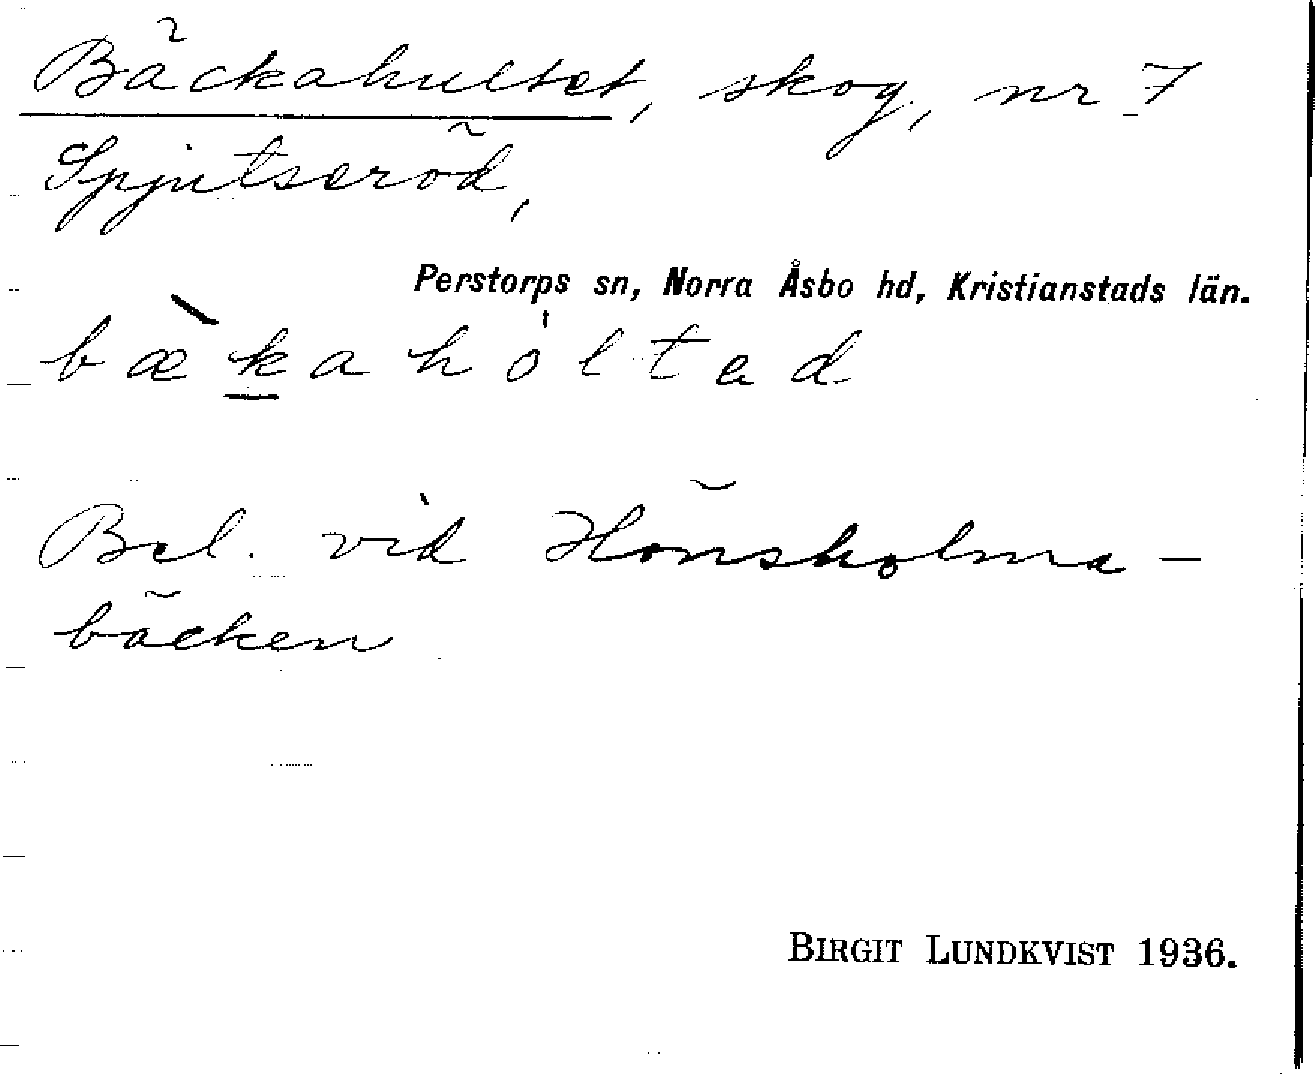 Bäckahultet, skog, nr 7
Spjutseröd,
Perstorps sn, Norra Åsbo hd, Kristianstads län.
bæ̀kahóltad
Bel. vid Hönsholma-
bäcken
BIRGIT LUNDKVIST 1936.